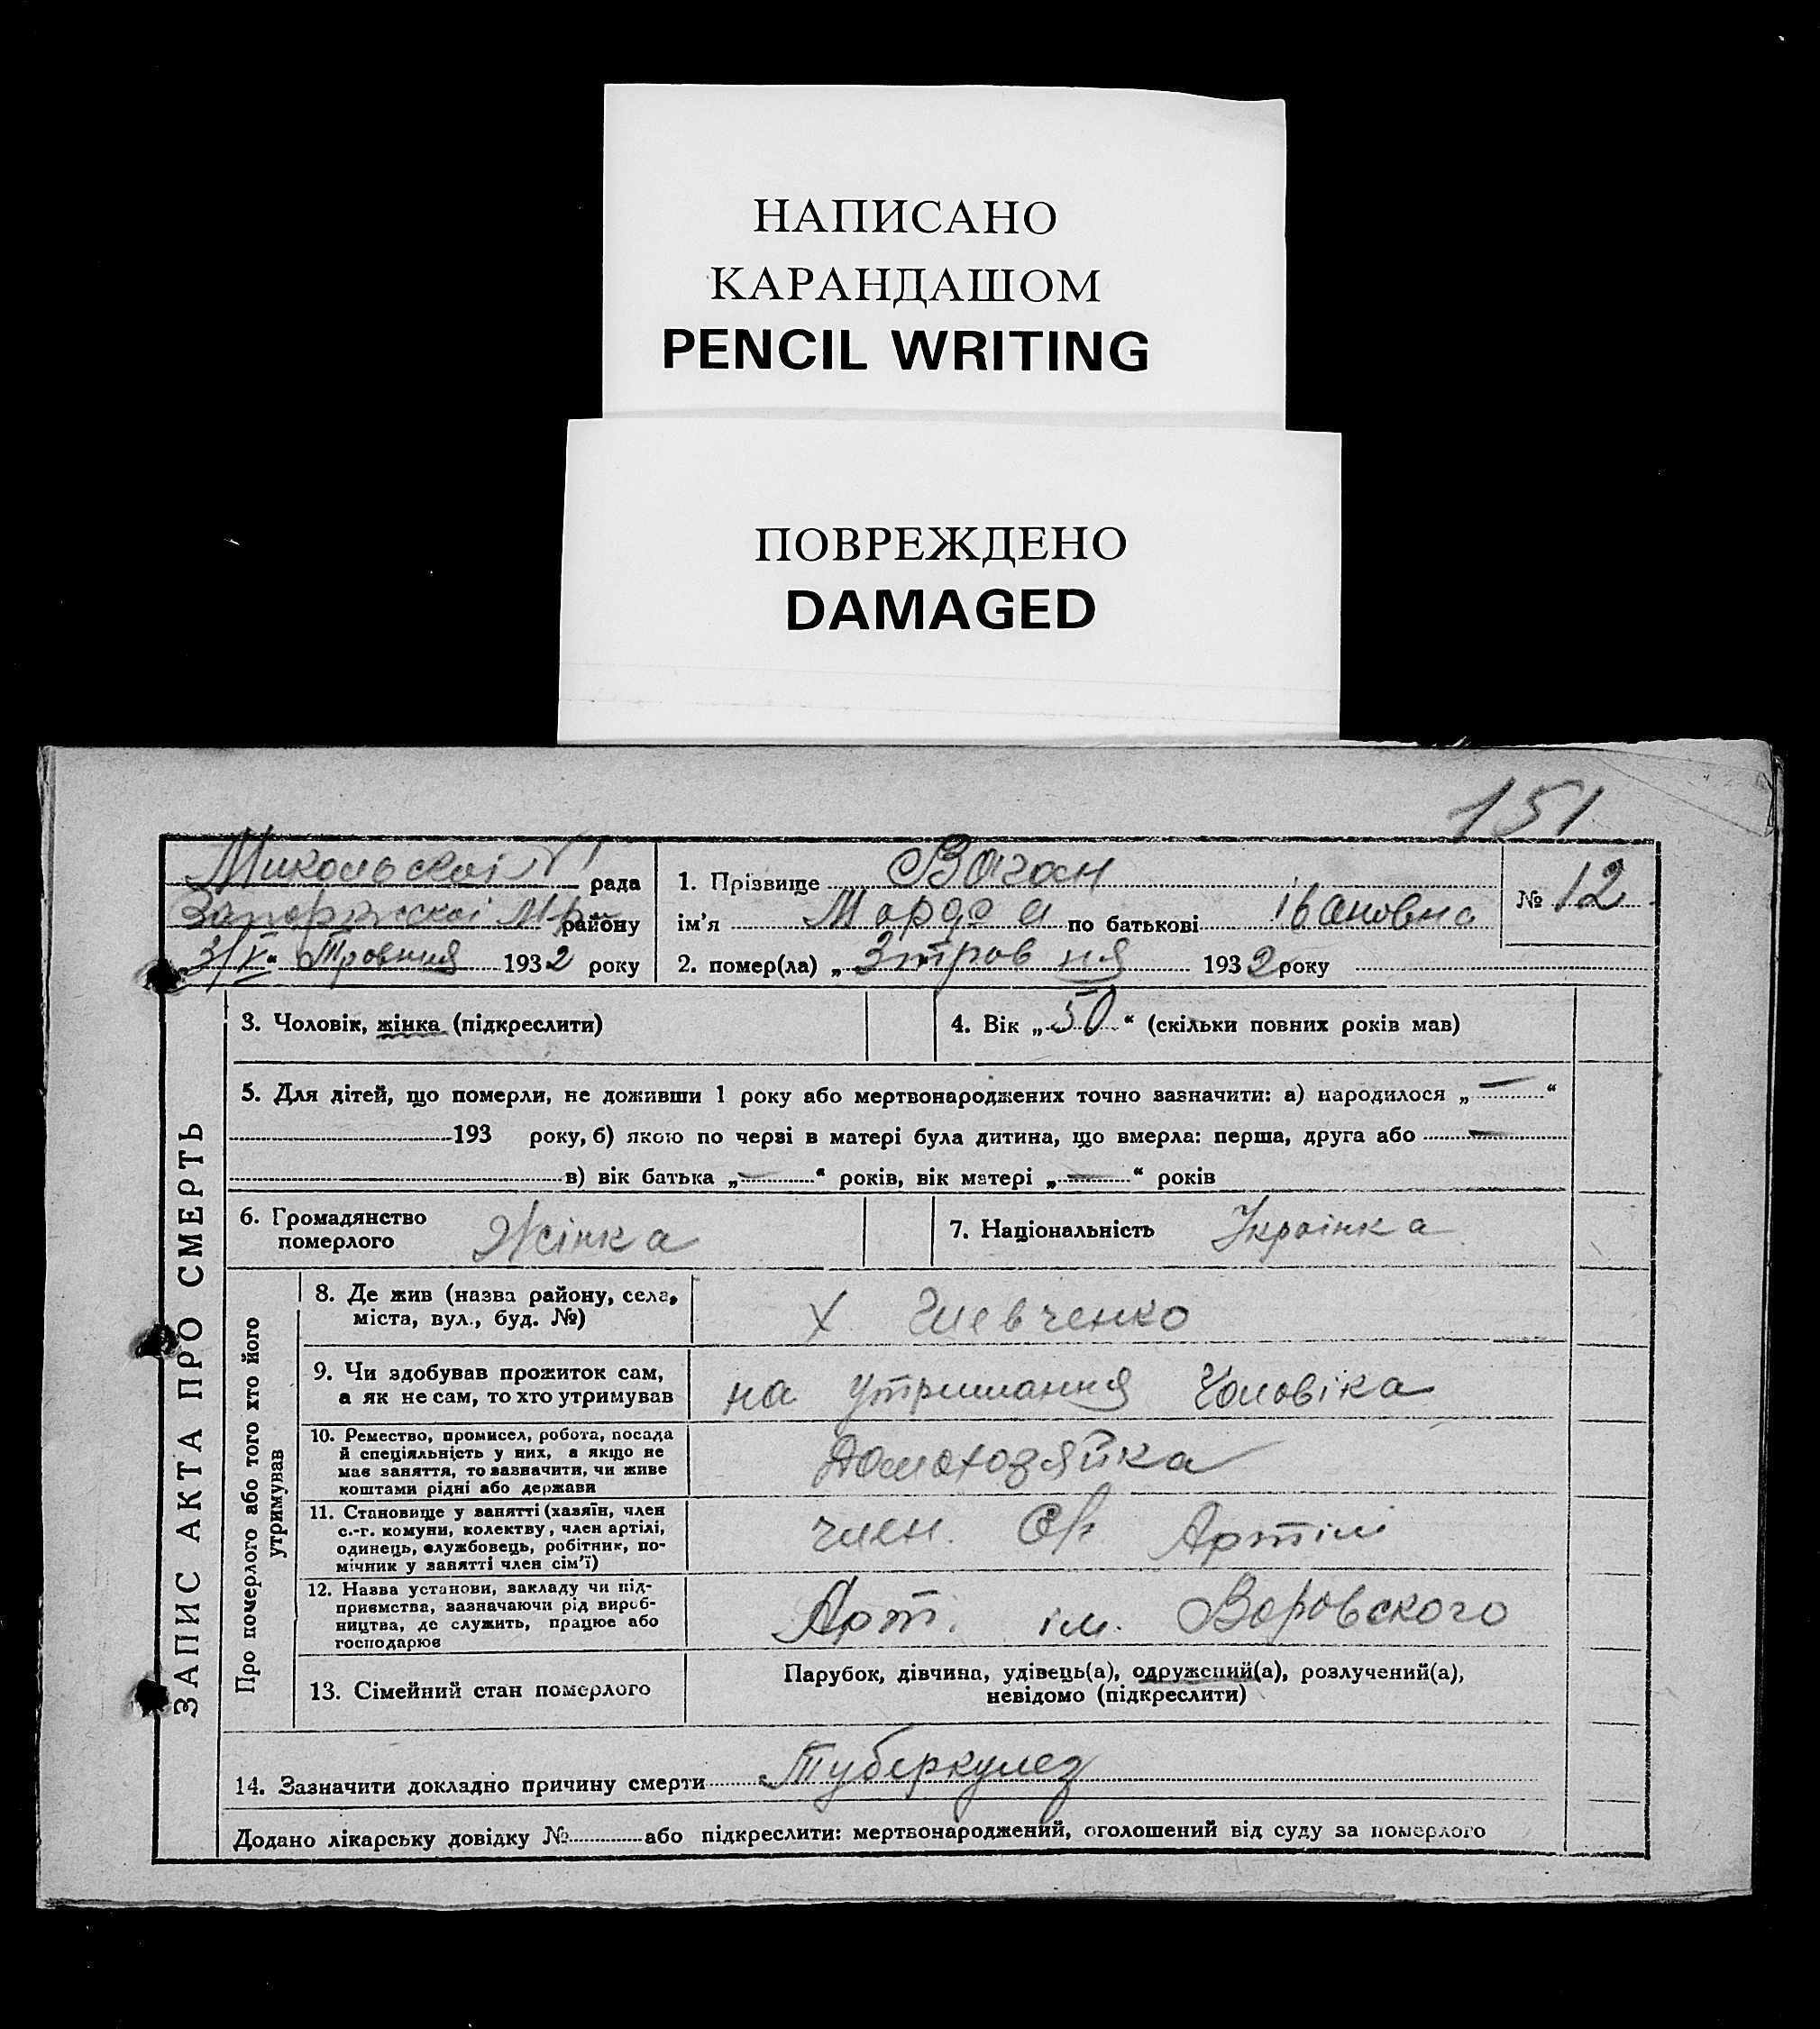 НАПИСАНО
КАРАНДАШОМ
PENCIL WRITING
ПОВРЕЖДЕНО
DAMAGED
151
рада
району
3/V“ Травня 1932 року
1. Прізвище Ваган
ім’я по батькові Івановна
2. помер(ла) „ 3 травня 1932 року
№ 12
ЗАПИС АКТА ПРО СМЕРТЬ
3. Чоловік, жінка (підкреслити)
4. Вік „ 50 “ (скільки повних років мав)
5. Для дітей, що померли, не доживши 1 року або мертвонароджених точно зазначити: а) народилося „ — “
193 року, б) якою по черзі в матері була дитина, що вмерла: перша, друга або —
в) вік батька „ — “ років, вік матері „ — “ років
6. Громадянство
померлого
Жінка
7. Національність Украінка
Про померлого або того хто його
утримував
8. Де жив (назва району, села,
міста, вул., буд. №)
х Шевченко
9. Чи здобував прожиток сам,
а як не сам, то хто утримував
на утримання Чоловіка
10. Ремество, промисел, робота, посада
й спеціяльність у них, а якщо не
має заняття, то зазначити, чи живе
коштами рідні або держави
Домохозяйка
11. Становище у занятті (хазяїн, член
с.-г. комуни, колективу, член артілі,
одинець, службовець, робітник, по-
мічник у занятті член сім’ї)
член. Артілі
12. Назва установи, закладу чи під-
приємства, зазначаючи рід вироб-
ництва, де служить, працює або
господарює
Арт. ім. Воровского
13. Сімейний стан померлого
Парубок, дівчина, удівець(а), одружений(а), розлучений(а),
невідомо (підкреслити)
14. Зазначити докладно причину смерти Туберкулез
Додано лікарську довідку № або підкреслити: мертвонароджений, оголошений від суду за померлого